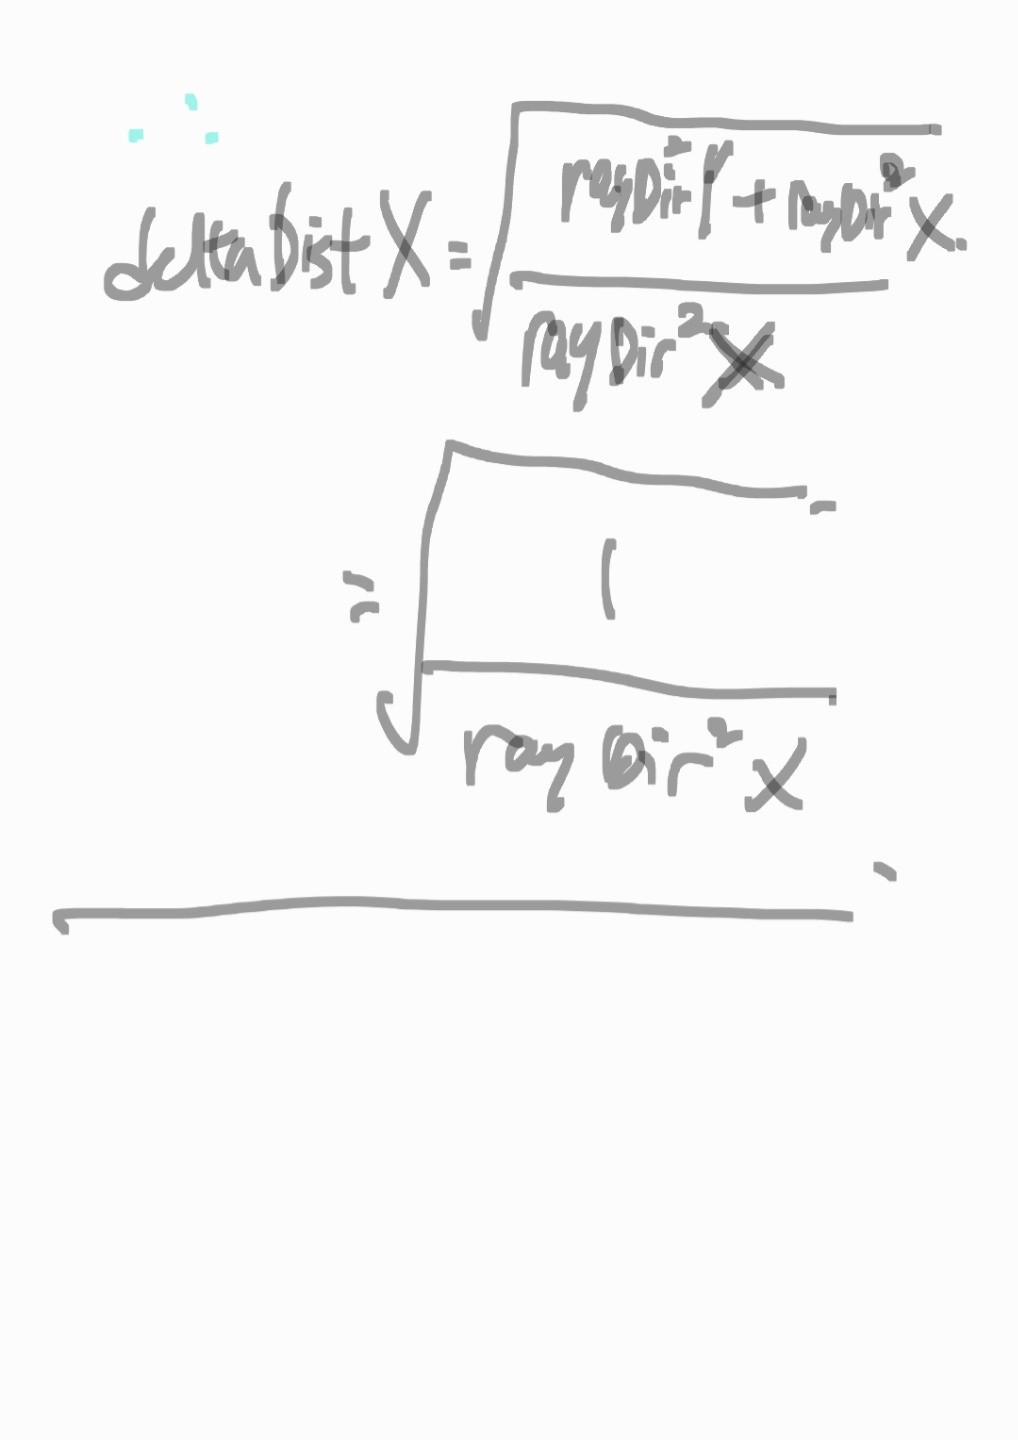 ∴
deltaDistX = √(rayDir²Y + rayDir²X / rayDir²X)
= √(1 / rayDir²X)